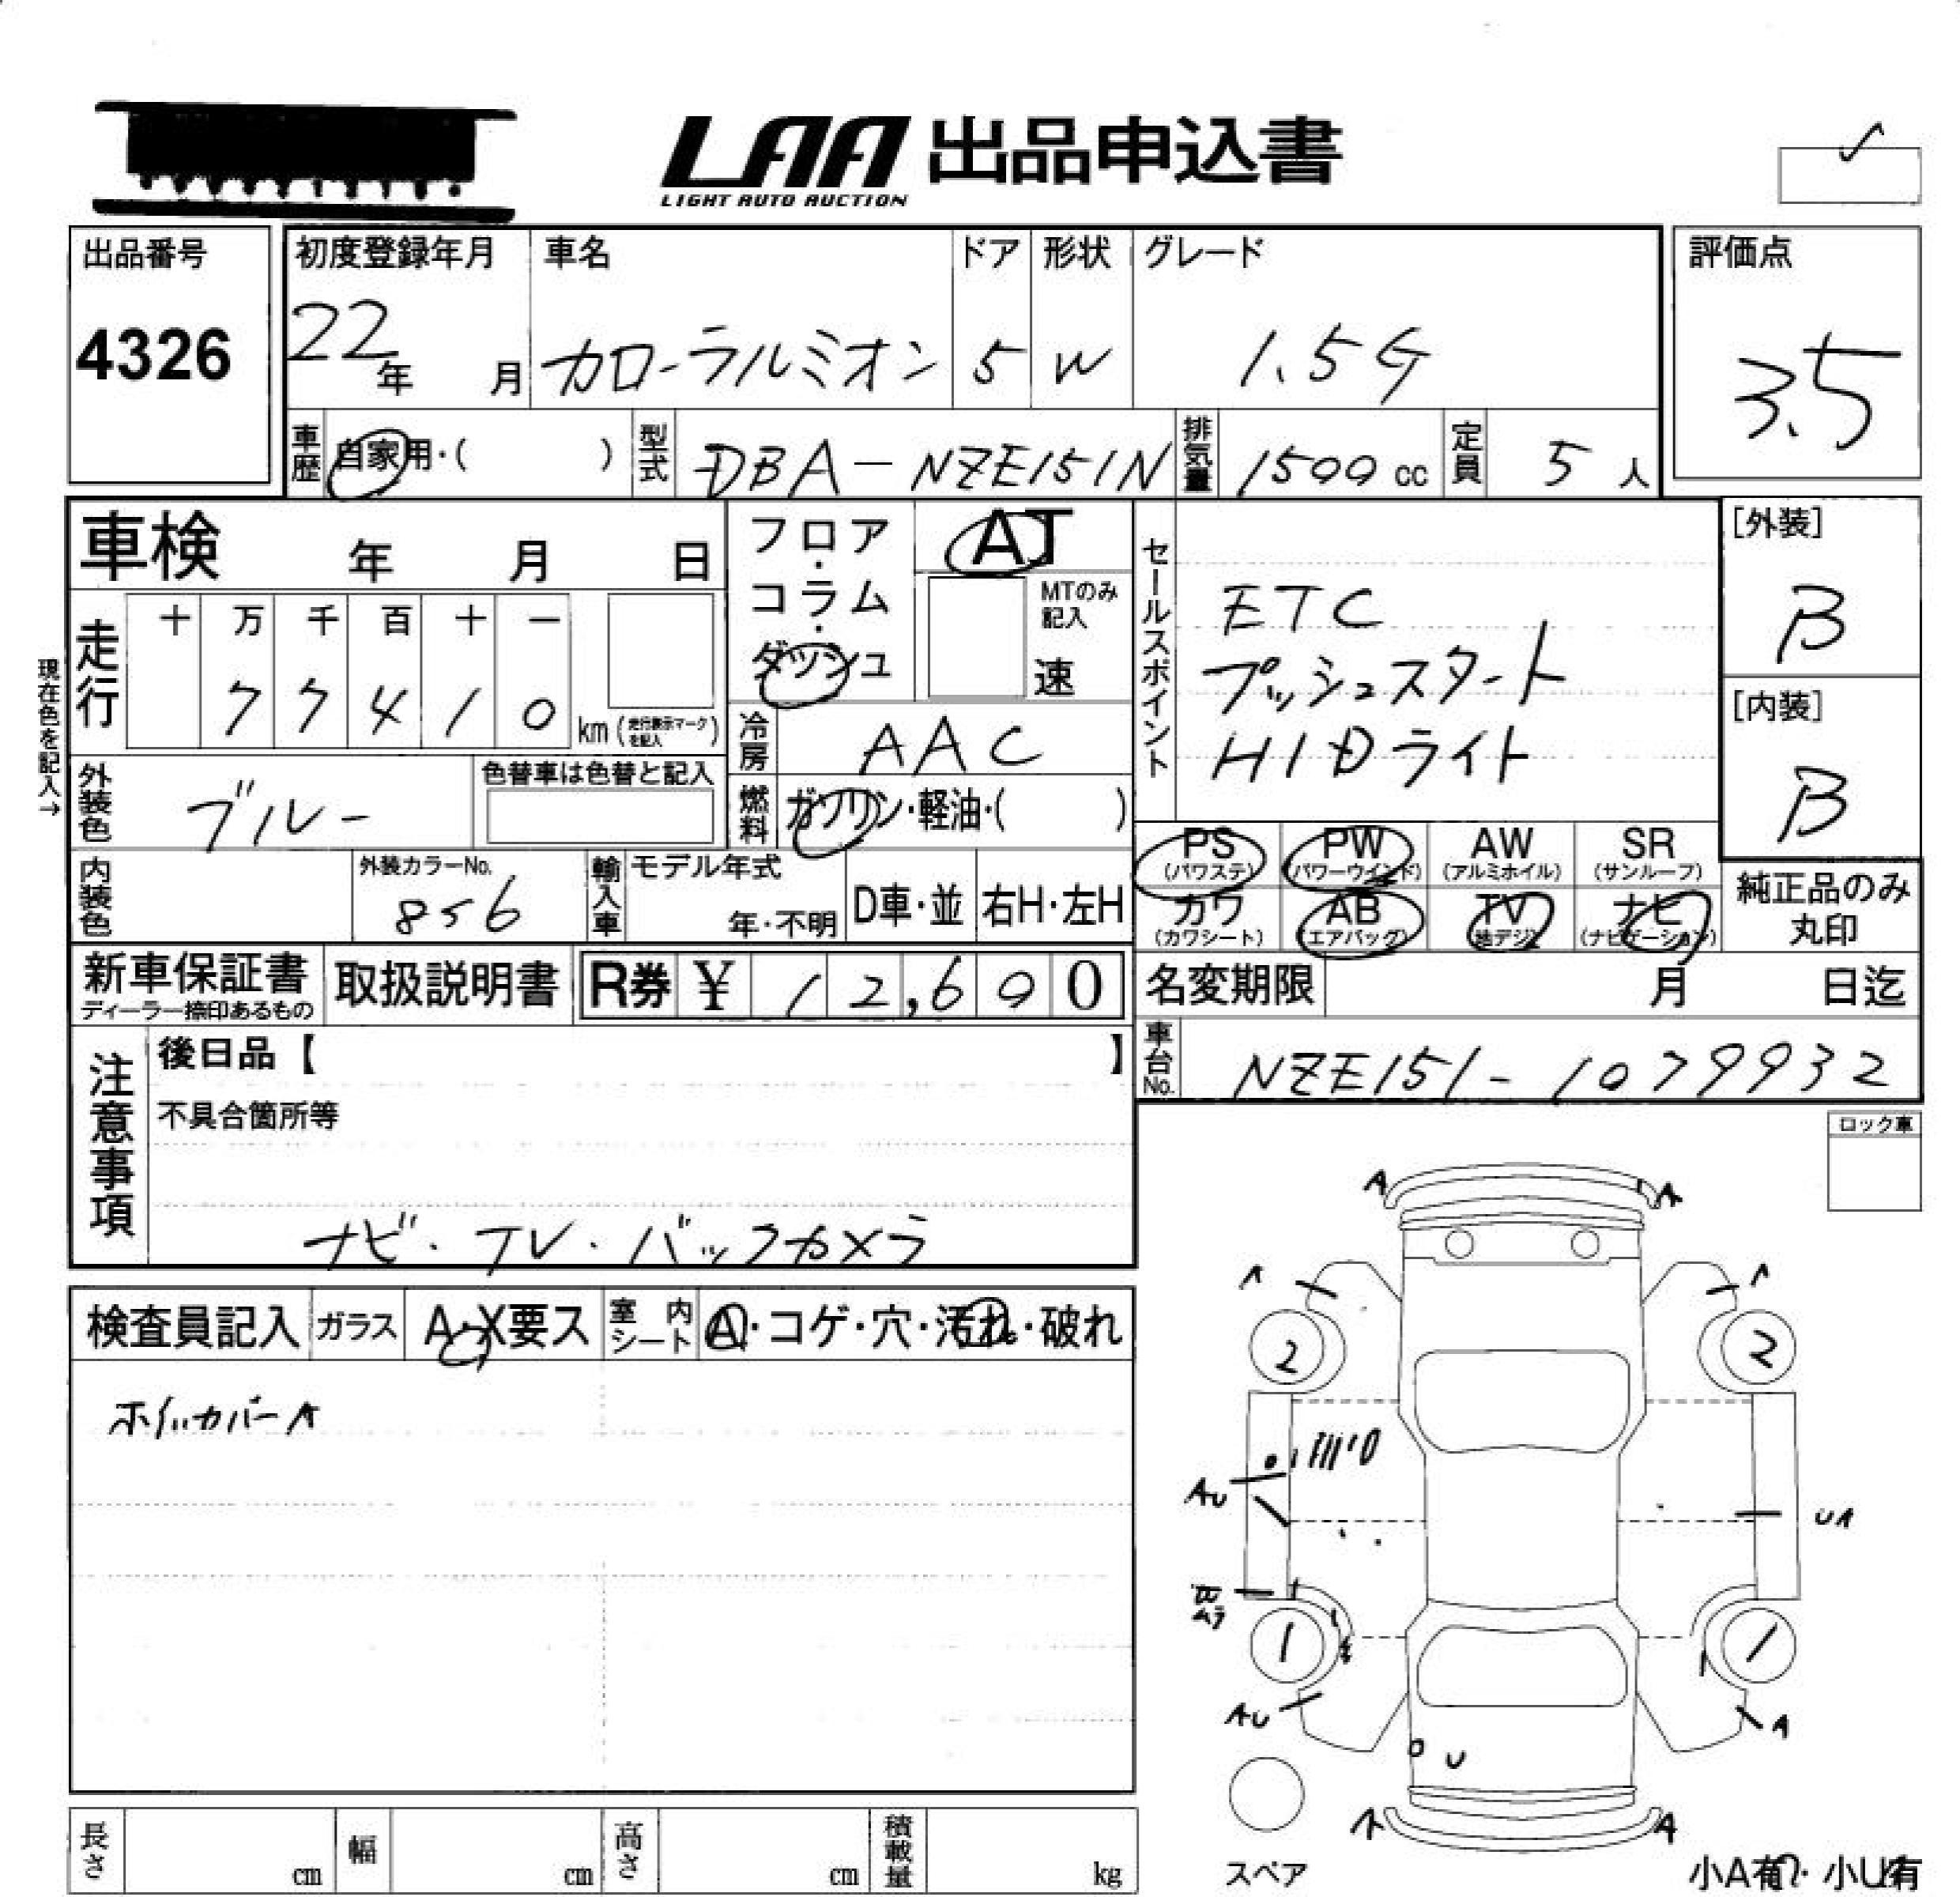 LAA 出品申込書
LIGHT AUTO AUCTION
出品番号
4326
初度登録年月
22年 月
車名
カローラルミオン
ドア
5
形状
W
グレード
1.5G
評価点
3.5
車歴 自家用・( )
型式 DBA-NZE151N
排気量 1500 cc
定員 5 人
車検 年 月 日
フロア・コラム・ダッシュ
AT
MTのみ記入
速
セールスポイント
ETC
プッシュスタート
HIDライト
[外装]
B
[内装]
B
現在色を記入→
走行
十 万 千 百 十 一
7 7 4 1 0 km (走行表示マークを記入)
冷房 AAC
外装色 ブルー
色替車は色替と記入
燃料 ガソリン・軽油・( )
PS (パワステ)
PW (パワーウインド)
AW (アルミホイル)
SR (サンルーフ)
カワ (カワシート)
AB (エアバッグ)
TV (地デジ)
ナビ (ナビゲーション)
純正品のみ丸印
内装色
外装カラーNo.
856
輸入車
モデル年式
年・不明
D車・並
右H・左H
新車保証書
ディーラー捺印あるもの
取扱説明書
R券 ¥ 12,690
名変期限 月 日迄
車台No. NZE151-1079932
注意事項
後日品【 】
不具合箇所等
ナビ・TV・バックカメラ
ロック車
検査員記入
ガラス A・X要ス
室内シート A・コゲ・穴・汚れ・破れ
ホイルカバーA
A A
A A
2 2
AU
UA
1 1
AU A
U
A A
スペア
小A有・小U有
長さ cm
幅 cm
高さ cm
積載量 kg